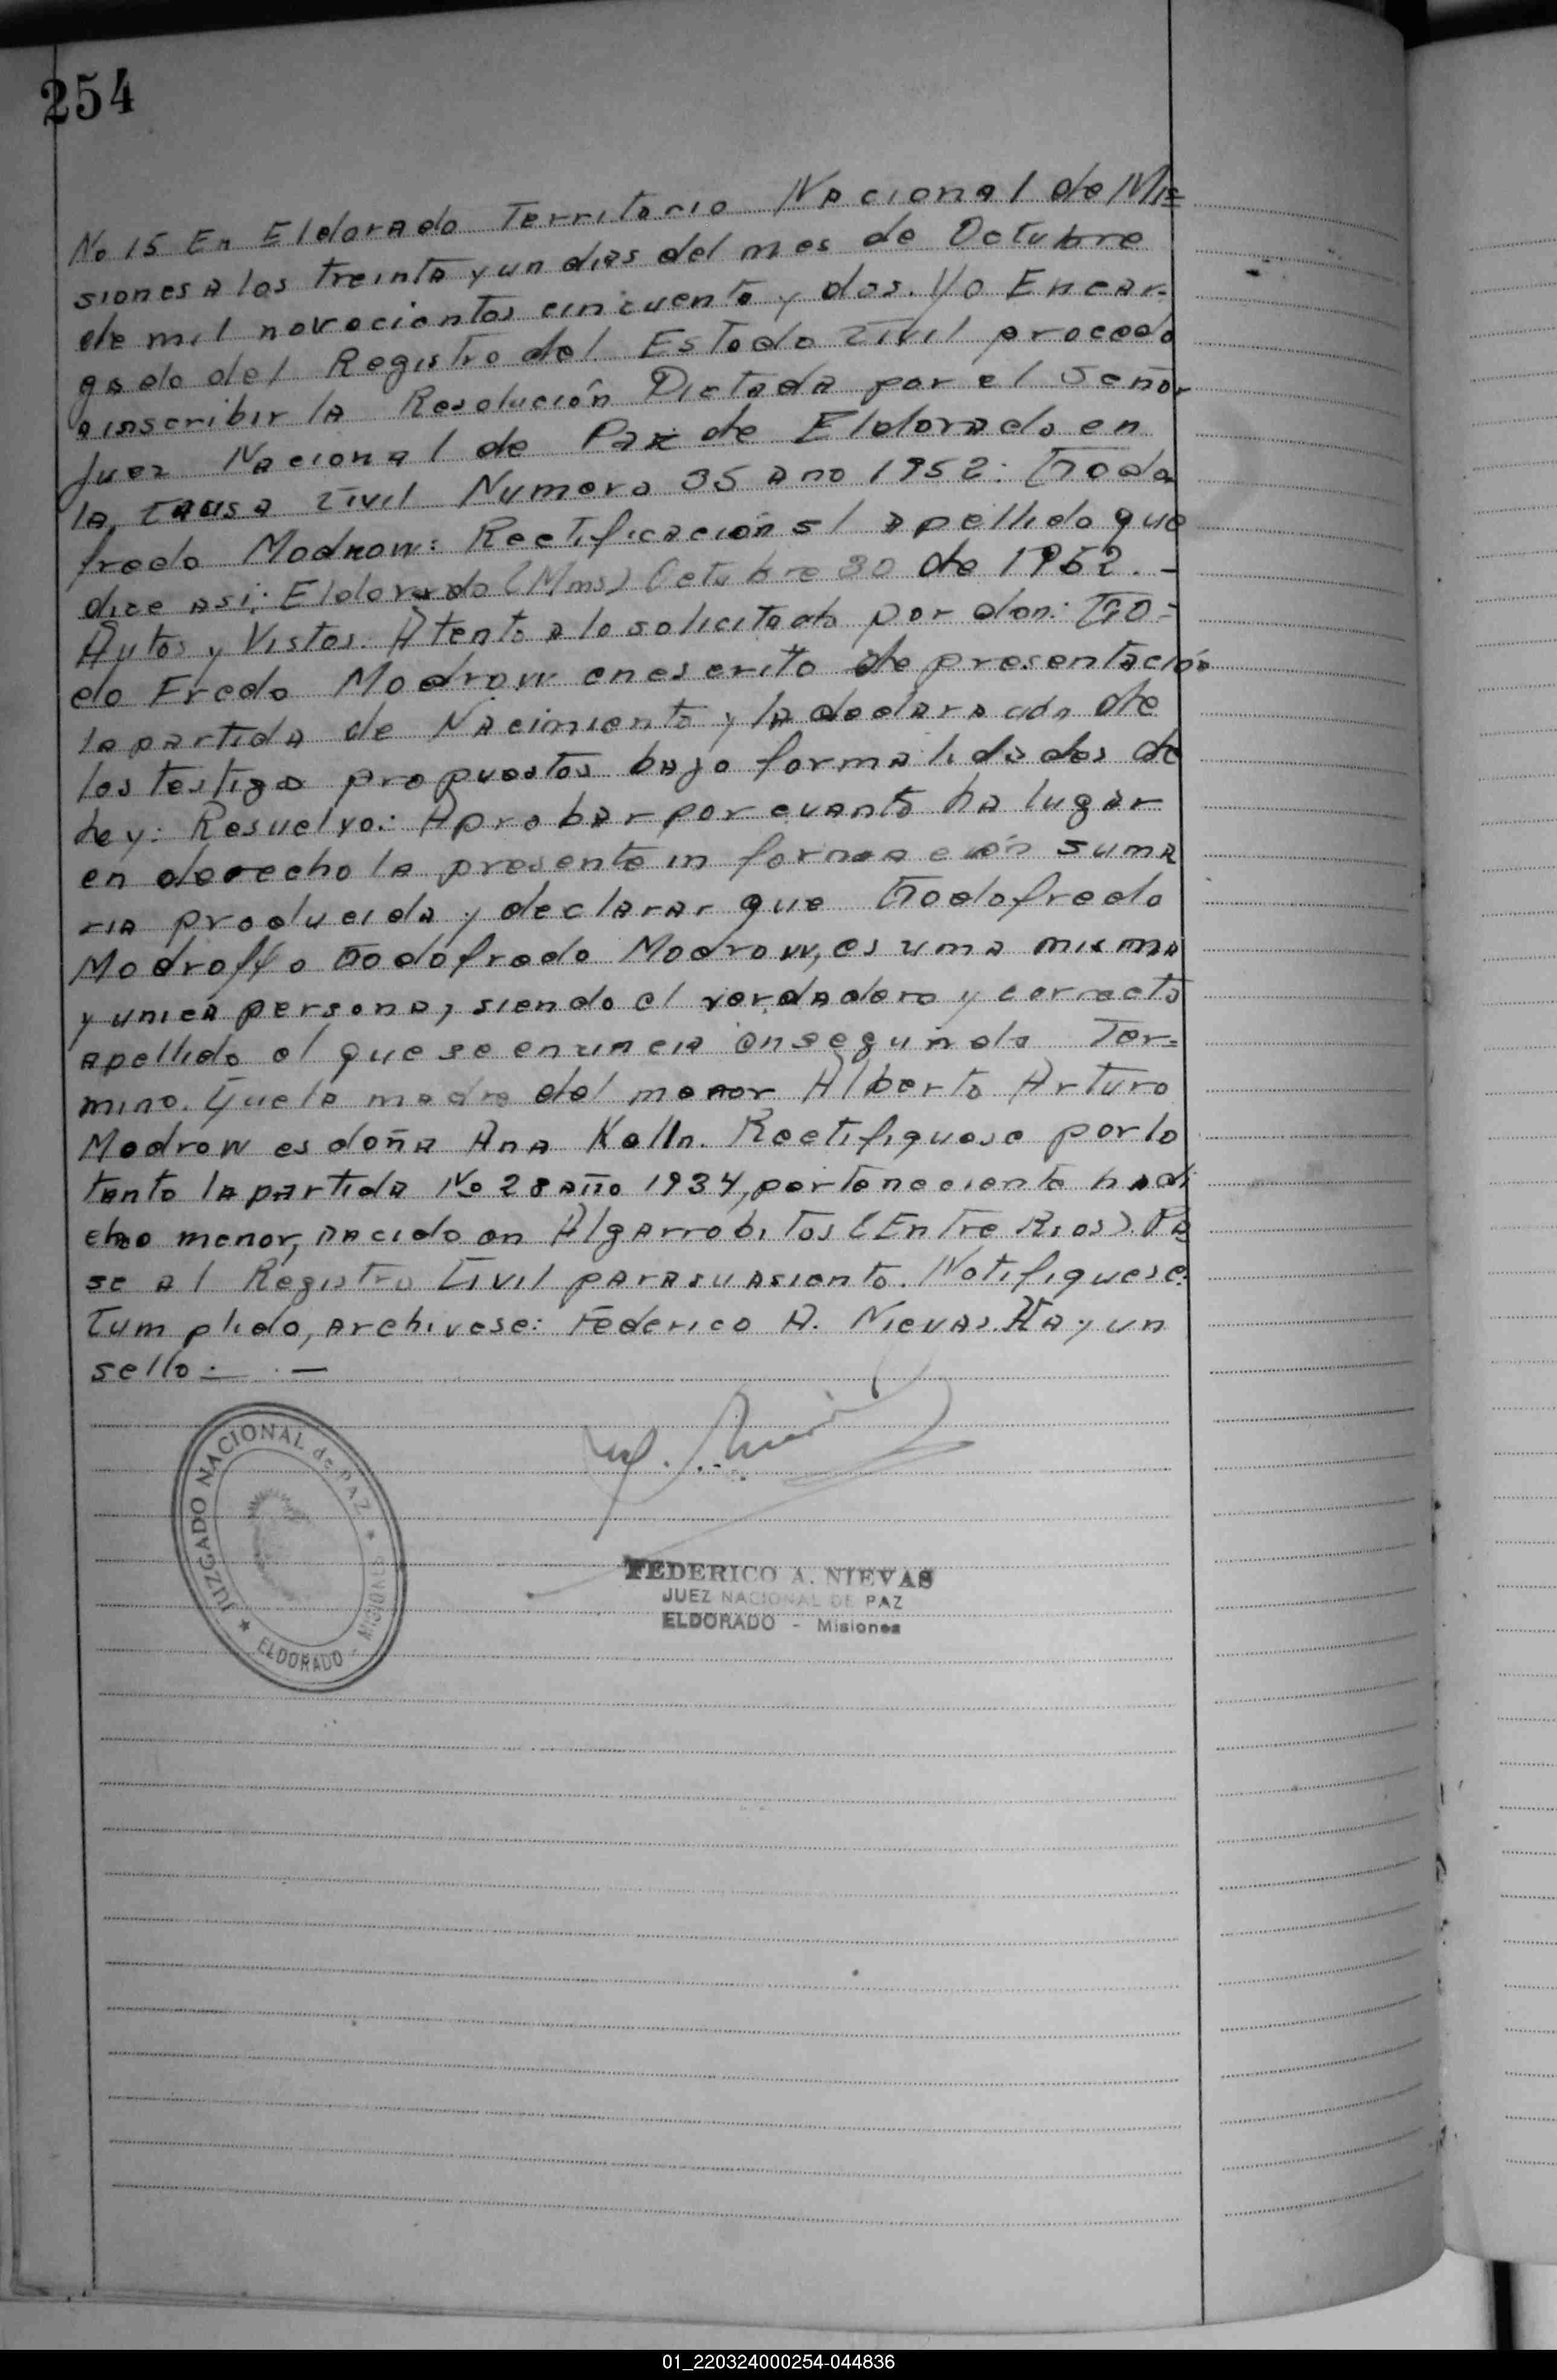 254
No 15 En Eldorado Territorio Nacional de Mis=
siones a los treinta y un dias del mes de Octubre
de mil novecientos cincuenta y dos. Yo Encar-
gado del Registro del Estado Civil procedo
a inscribir la Resolución Dictada por el Señor
Juez Nacional de Paz de Eldorado en
la causa Civil Numero 35 año 1952: Godo
fredo Modrow: Rectificación el apellido que
dice asi: Eldorado (Mms) Octubre 30 de 1952. -
Autos y Vistos. Atento a lo solicitado por don: Go=
do Fredo Modrow en escrito de presentación
la partida de Nacimiento y la declaracion de
los testigos propuestos bajo formalidades de
Ley: Resuelvo: Aprobar por cuanto ha lugar
en derecho la presente informacion suma
ria producida y declarar que Godofredo
Modroff o Godofredo Modrow, es uma misma
y unica persona, siendo el verdadero y correcto
apellido el que se enuncia en segundo Ter=
mino. Que la madre del menor Alberto Arturo
Modrow es doña Ana Kolln. Rectifiquese por lo
tanto la partida No 28 año 1934, perteneciente ha di
cho menor, nacido en Algarrobitos (Entre Rios). Pa
se al Registro Civil para su asiento. Notifiquese.
Cumplido, archivese: Federico A. Nievas. Hay un
sello: —
JUZGADO NACIONAL de PAZ
ELDORADO - MISIONES
FEDERICO A. NIEVAS
JUEZ NACIONAL DE PAZ
ELDORADO - Misiones
01_220324000254-044836